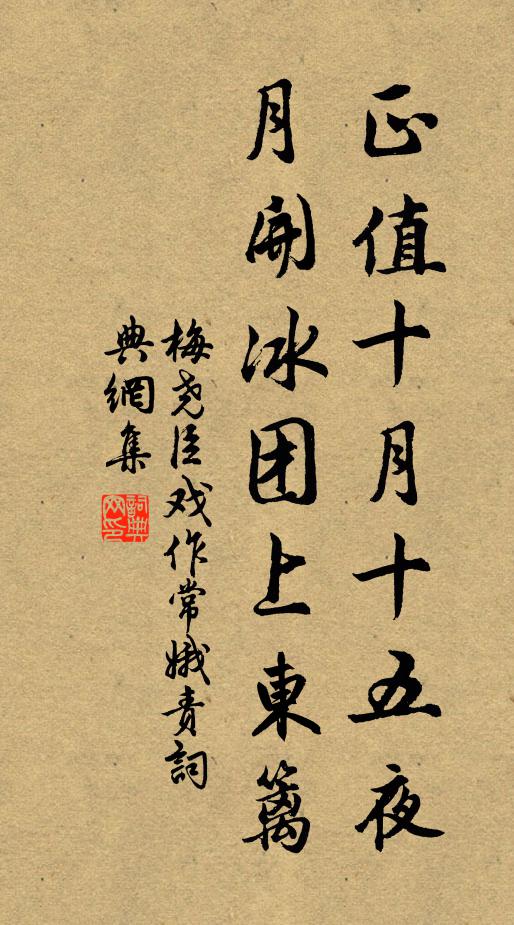 正值十月十五夜
月開冰团上東籬
梅尧臣戏作常娥责詞
典網集
詞典网印